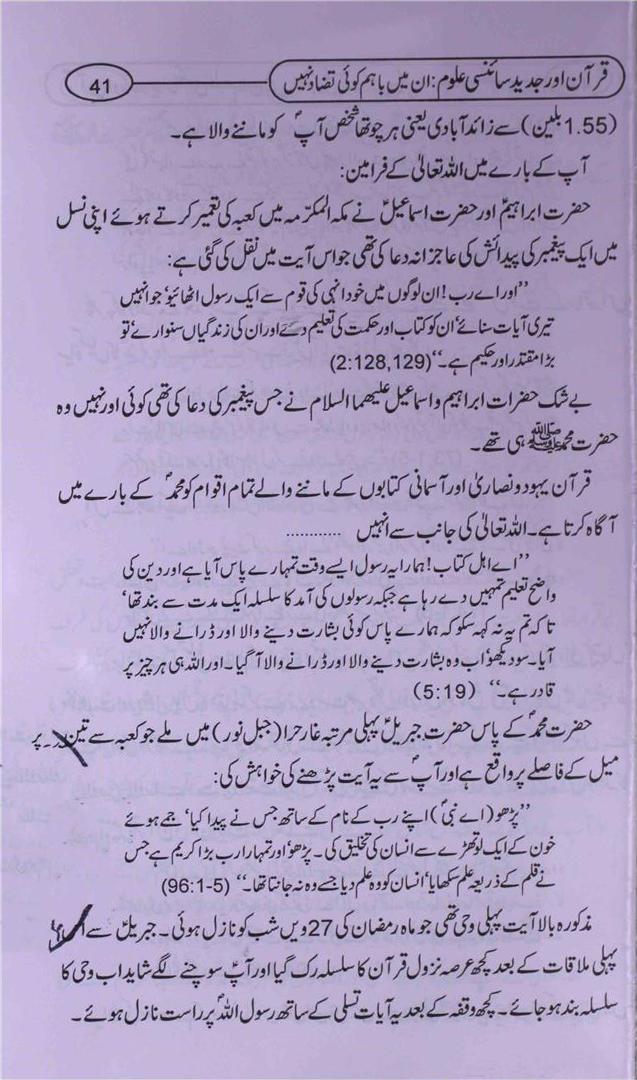 41
قرآن اور جدید سائنسی علوم : ان میں باہم کوئی تضاد نہیں
(1.55 بلین) سے زائد آبادی یعنی ہر چوتھا شخص آپؐ کو ماننے والا ہے۔
آپ کے بارے میں اللہ تعالیٰ کے فرامین:
حضرت ابراہیمؑ اور حضرت اسماعیلؑ نے مکہ المکرّمہ میں کعبہ کی تعمیر کرتے ہوئے اپنی نسل
میں ایک پیغمبر کی پیدائش کی عاجزانہ دعا کی تھی جو اس آیت میں نقل کی گئی ہے:
’’اور اے رب! ان لوگوں میں خود انہی کی قوم سے ایک رسول اٹھائیو‘ جو انہیں
تیری آیات سنائے‘ ان کو کتاب اور حکمت کی تعلیم دے اور ان کی زندگیاں سنوارے‘ تو
بڑا مقتدر اور حکیم ہے۔‘‘ (2:128,129)
بے شک حضرات ابراہیم و اسماعیل علیھما السلام نے جس پیغمبر کی دعا کی تھی کوئی اور نہیں وہ
حضرت محمد ﷺ ہی تھے۔
قرآن یہود و نصاریٰ اور آسمانی کتابوں کے ماننے والے تمام اقوام کو محمدؐ کے بارے میں
آگاہ کرتا ہے۔ اللہ تعالیٰ کی جانب سے انہیں ............
’’اے اہل کتاب! ہمارا یہ رسول ایسے وقت تمہارے پاس آیا ہے اور دین کی
واضح تعلیم تمہیں دے رہا ہے جبکہ رسولوں کی آمد کا سلسلہ ایک مدت سے بند تھا‘
تاکہ تم یہ نہ کہہ سکو کہ ہمارے پاس کوئی بشارت دینے والا اور ڈرانے والا نہیں
آیا۔ سو دیکھو‘ اب وہ بشارت دینے والا اور ڈرانے والا آ گیا۔ اور اللہ ہی ہر چیز پر
قادر ہے۔‘‘ (5:19)
حضرت محمدؐ کے پاس حضرت جبریلؑ پہلی مرتبہ غار حرا (جبل نور) میں ملے جو کعبہ سے تین پر
میل کے فاصلے پر واقع ہے اور آپؐ سے یہ آیت پڑھنے کی خواہش کی:
’’پڑھو (اے نبیؐ) اپنے رب کے نام کے ساتھ جس نے پیدا کیا‘ جمے ہوئے
خون کے ایک لوتھڑے سے انسان کی تخلیق کی۔ پڑھو‘ اور تمہارا رب بڑا کریم ہے جس
نے قلم کے ذریعہ علم سکھایا‘ انسان کو وہ علم دیا جسے وہ نہ جانتا تھا۔‘‘ (96:1-5)
مذکورہ بالا آیت پہلی وحی تھی جو ماہ رمضان کی 27 ویں شب کو نازل ہوئی۔ جبریلؑ سے
پہلی ملاقات کے بعد کچھ عرصہ نزول قرآن کا سلسلہ رک گیا اور آپؐ سوچنے لگے شاید اب وحی کا
سلسلہ بند ہو جائے۔ کچھ وقفہ کے بعد یہ آیات تسلی کے ساتھ رسول اللہؐ پر راست نازل ہوئے۔